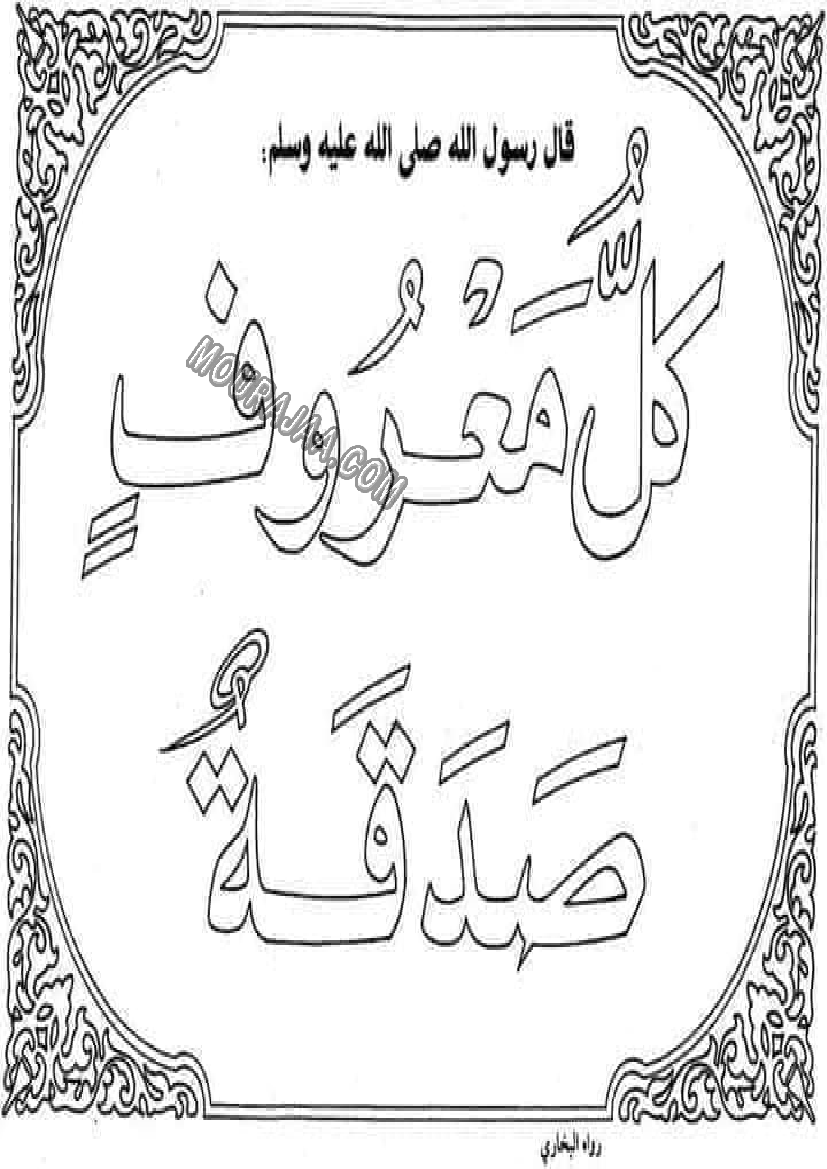 قال رسول الله صلى الله عليه وسلم:
كُلُّ مَعْرُوفٍ
MOURAJAA.COM
صَدَقَةٌ
رواه البخاري